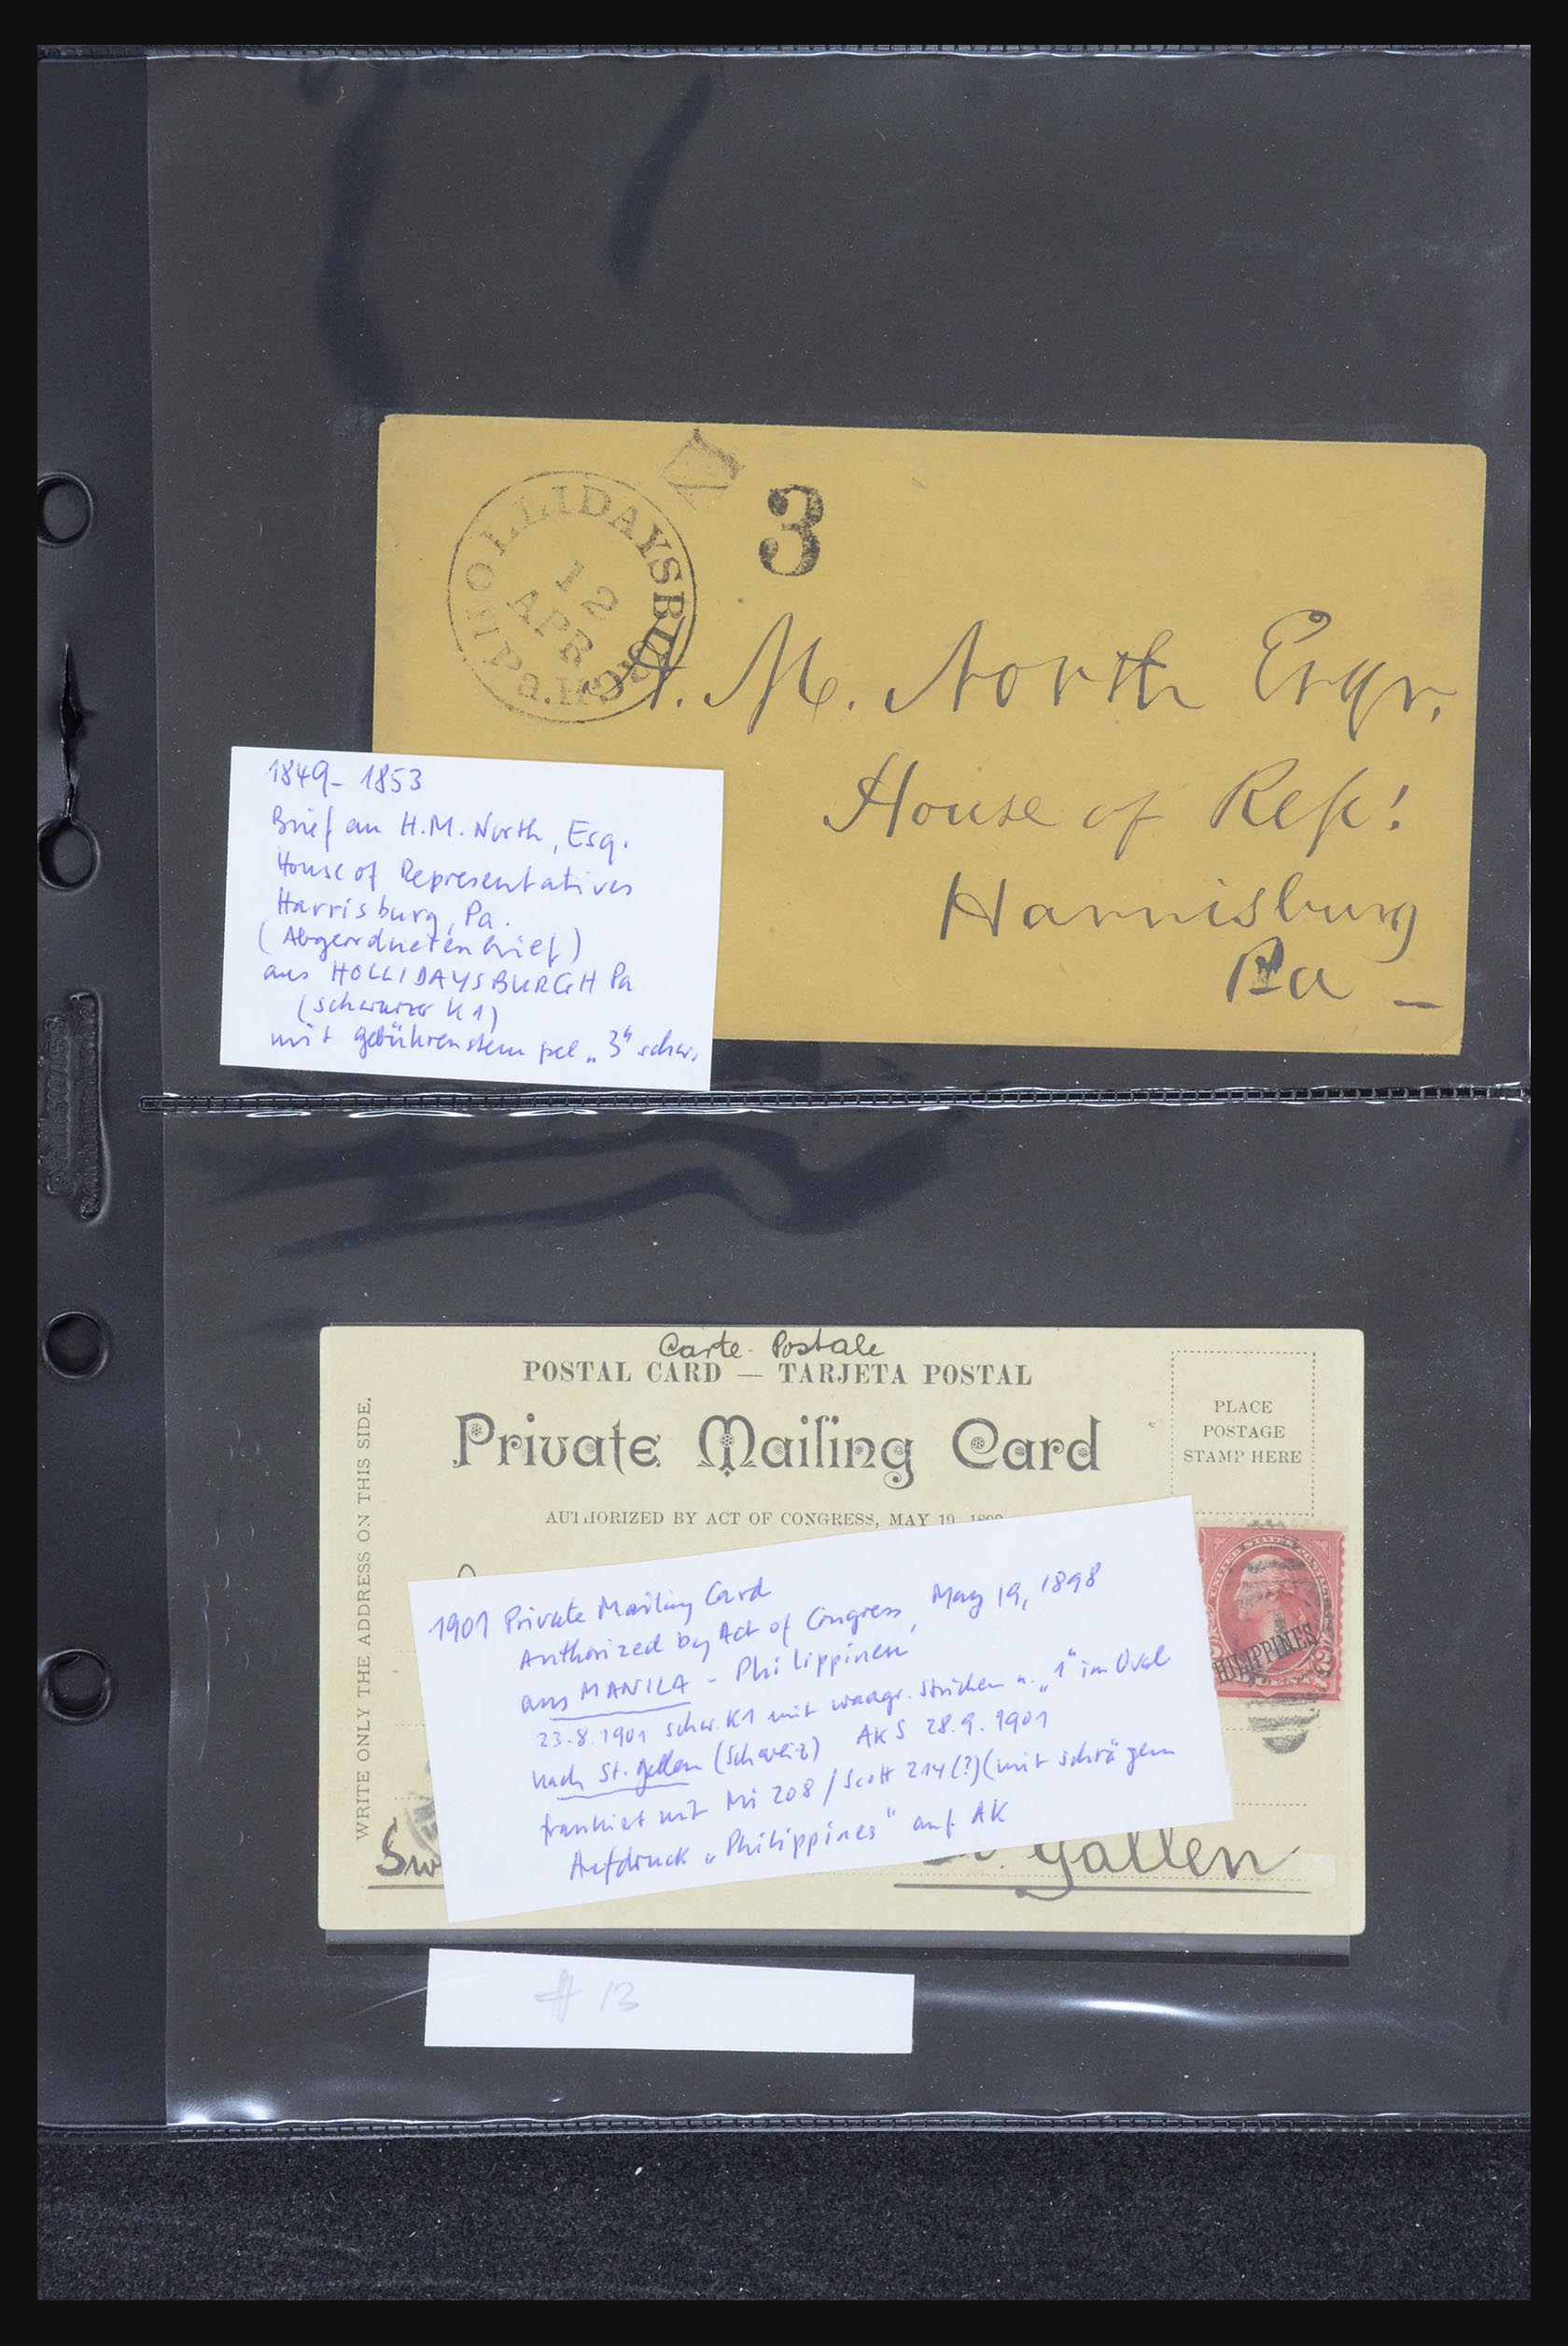 HOLLIDAYSBURGH Pa.
12
APR
3
H. M. North Esqr.
House of Rep!
Harrisburg
Pa
1849 - 1853
Brief an H.M. North, Esq.
House of Representatives
Harrisburg, Pa.
(Abgeordnetenbrief)
aus HOLLIDAYSBURGH Pa
(schwarzer K1)
mit Gebührenstempel „3“ schw.
Carte Postale
POSTAL CARD — TARJETA POSTAL
Private Mailing Card
AUTHORIZED BY ACT OF CONGRESS, MAY 19, 1898
PLACE
POSTAGE
STAMP HERE
WRITE ONLY THE ADDRESS ON THIS SIDE.
PHILIPPINES
1901 Private Mailing Card
Authorized by Act of Congress, May 19, 1898
aus MANILA - Philippinen
23.8.1901 schw. K1 mit waagr. Strichen u. „1“ im Oval
nach St. Gallen (Schweiz) AKS 28.9.1901
frankiert mit Mi 208 / Scott 214(?) (mit schrägem
Aufdruck „Philippines“ auf AK
Sw
Gallen
# 13